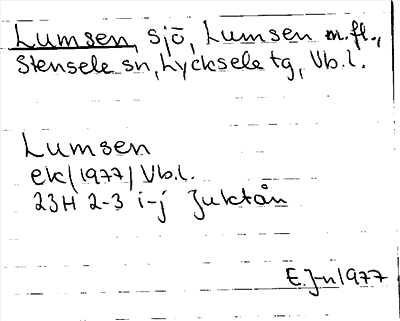 Lumsen, sjö, Lumsen m.fl.,
Stensele sn, Lycksele tg, Vb.l.
Lumsen
ek (1977) Vb.l.
23H 2-3 i-j Juktån
E.J-n 1977